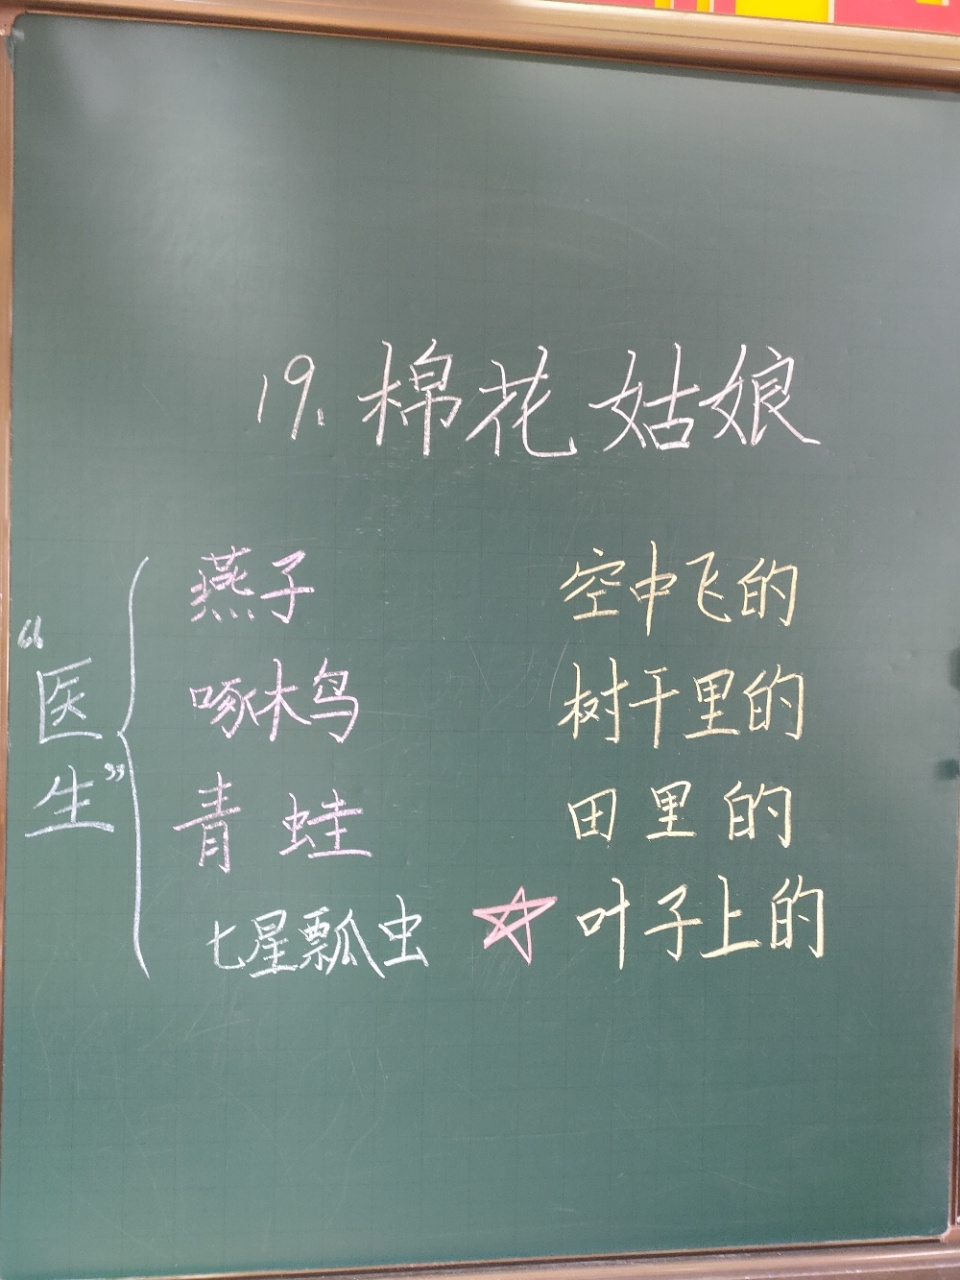 19. 棉花姑娘
“医生”
燕子 空中飞的
啄木鸟 树干里的
青蛙 田里的
七星瓢虫 叶子上的